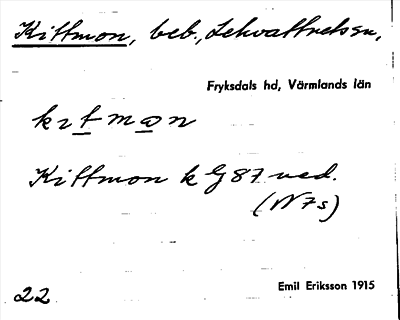 Kittmon, beb., Lekvattnets sn,
Fryksdals hd, Värmlands län
kɩtmɷn
Kittmon k G 87 ned.
(N 7s)
Emil Eriksson 1915
22